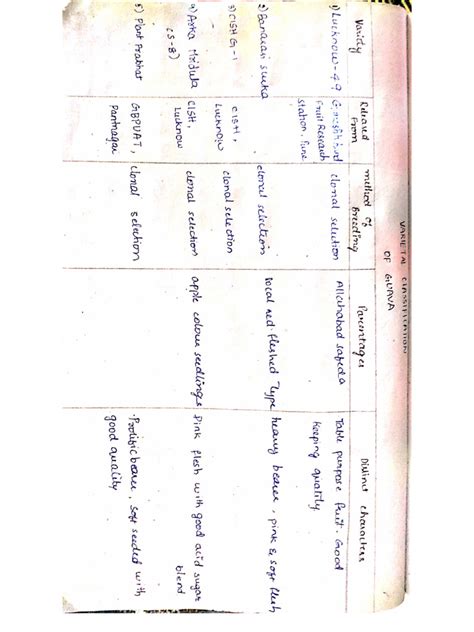 VARIETAL CLASSIFICATION
OF GUAVA
Variety
Released
From
method of
Breeding
Parentages
Distinct characters
1) Lucknow-49
Fruit Research
station, Pune
clonal selection
Allahabad safeda
Table purpose fruit. Good
keeping quality
2) Banarasi surkha
clonal selection
local red fleshed type
heavy bearer, pink & soft flesh
3) CISH G-1
CISH,
Lucknow
clonal selection
4) Arka Mridula
(S-8)
CISH,
Lucknow
clonal selection
apple colour seedlings
Pink flesh with good acid sugar
blend
5) Pant Prabhat
GBPUAT,
Pantnagar
clonal selection
· Prolific bearer, soft seeded with
good quality